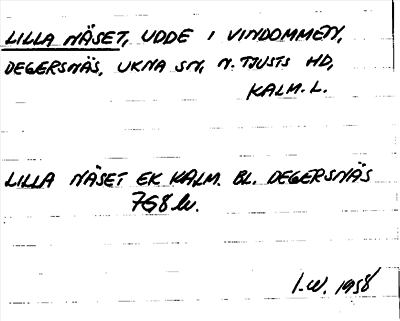 LILLA NÄSET, UDDE I VINDOMMEN,
DEGERSNÄS, UKNA SN, N. TJUSTS HD,
KALM. L.
LILLA NÄSET EK KALM. BL. DEGERSNÄS
7G8
I.W. 1958